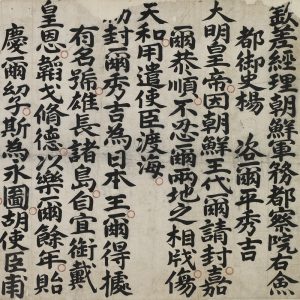 欽差經理朝鮮軍務都察院右僉
都御史楊 咨爾平秀吉
大明皇帝因朝鮮王代爾請封嘉
爾恭順不忍爾兩地之相戕傷
天和用遣使臣渡海
勅封爾秀吉為日本王爾得據
有名號雄長諸島自宜銜戴
皇恩韜戈脩德以樂爾餘年貽
慶爾幼子斯為永圖胡使臣甫